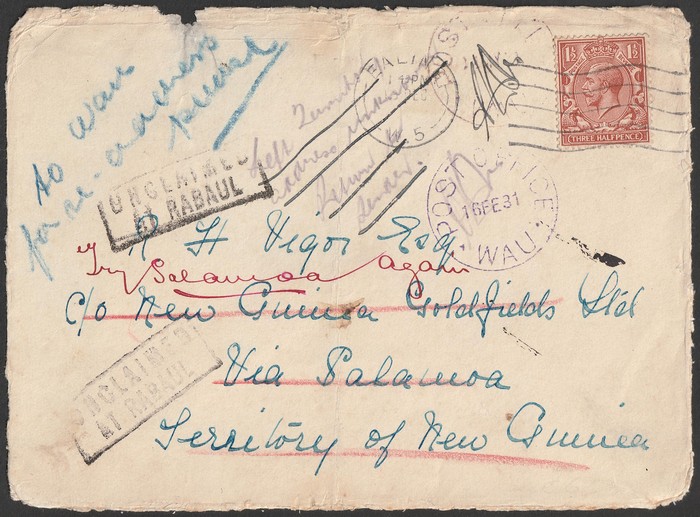 to Wau
for re-address
please
EALING
W.5
1½ 1½
THREE HALFPENCE
Left Territory
address unknown
Return to
Sender.
POST OFFICE
16FE31
WAU
UNCLAIMED
AT RABAUL
R H Vigor Esq
Try Salamoa again
c/o New Guinea Goldfields Ltd
Via Salamoa
Territory of New Guinea
UNCLAIMED
AT RABAUL